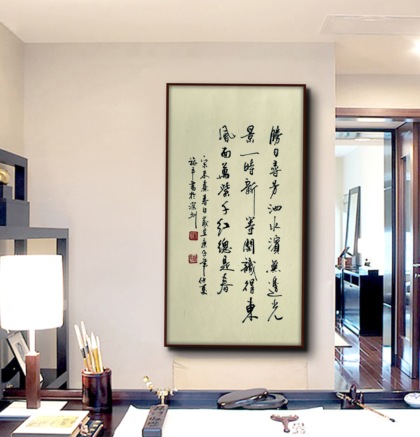 勝日尋芳泗水濱無邊光
景一時新等閒識得東
風面萬紫千紅總是春
宋朱熹春日歲在庚子年仲夏